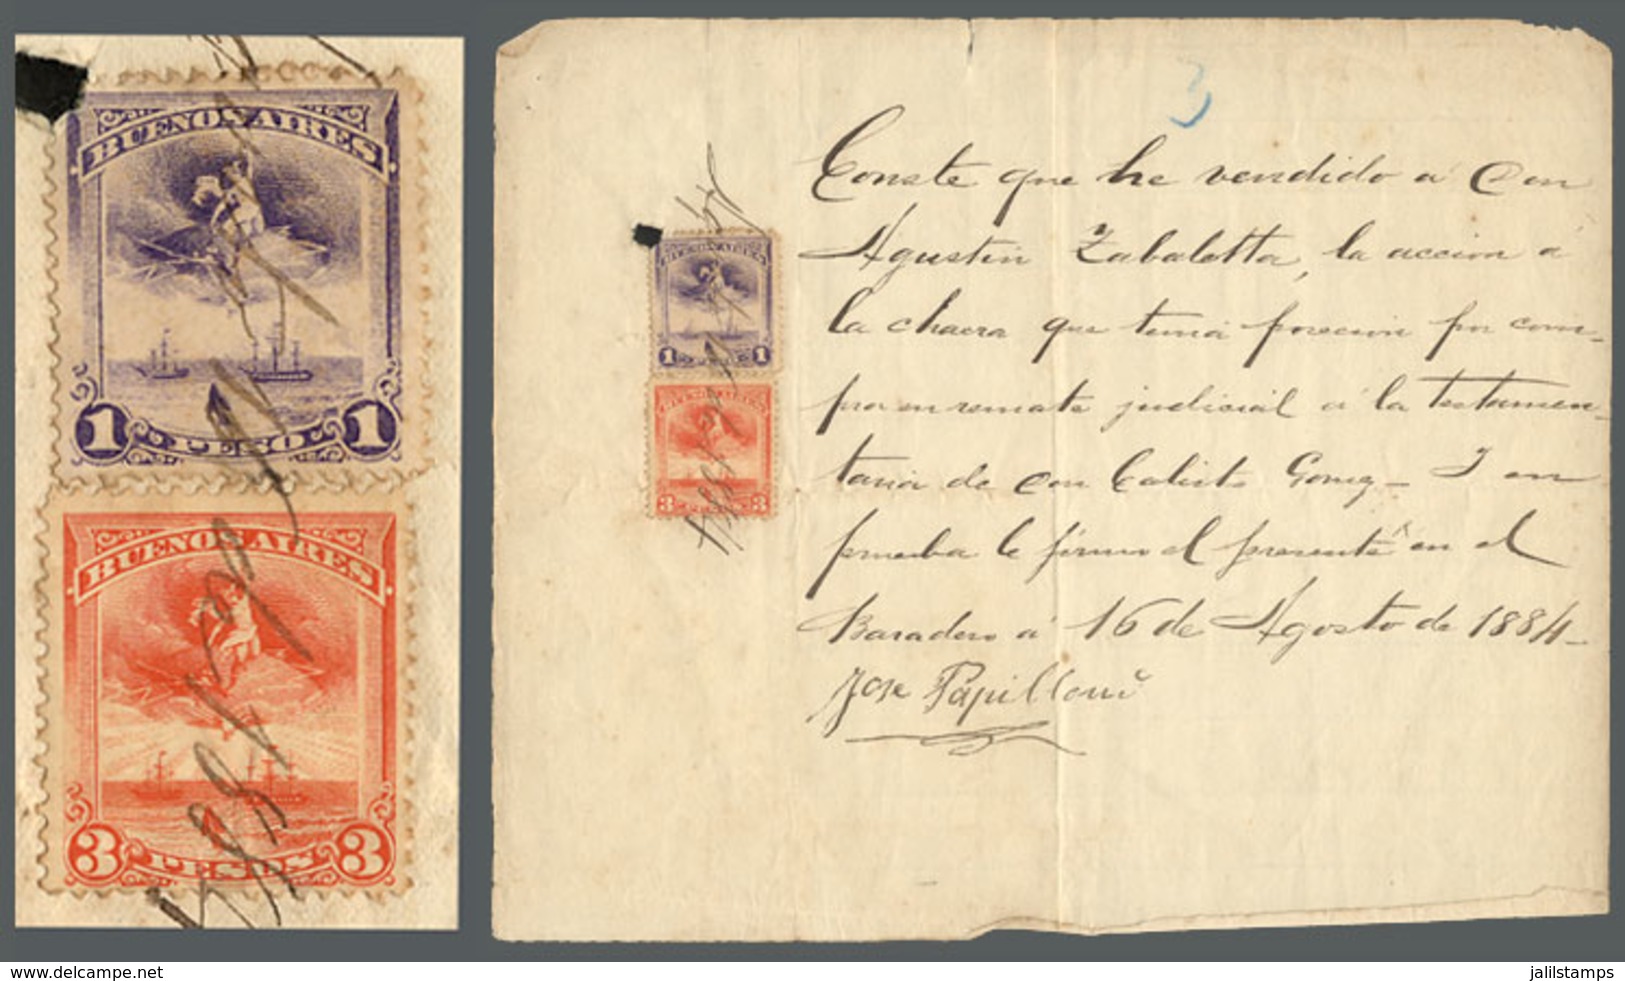 BUENOS AIRES
1 PESO 1
BUENOS AIRES
3 PESOS 3
3
Conste que he vendido a Don
Agustin Zabaletta, la accion á
la chacra que tenia posecion por com-
pra en remate judicial á la testamen-
taria de Don Calisto Gomez - I en
prueba le firmo el presente en el
Baradero á 16 de Agosto de 1884-
Jose
BUENOS AIRES
1 PESO 1
BUENOS AIRES
3 PESOS 3
www.delcampe.net
jalilstamps